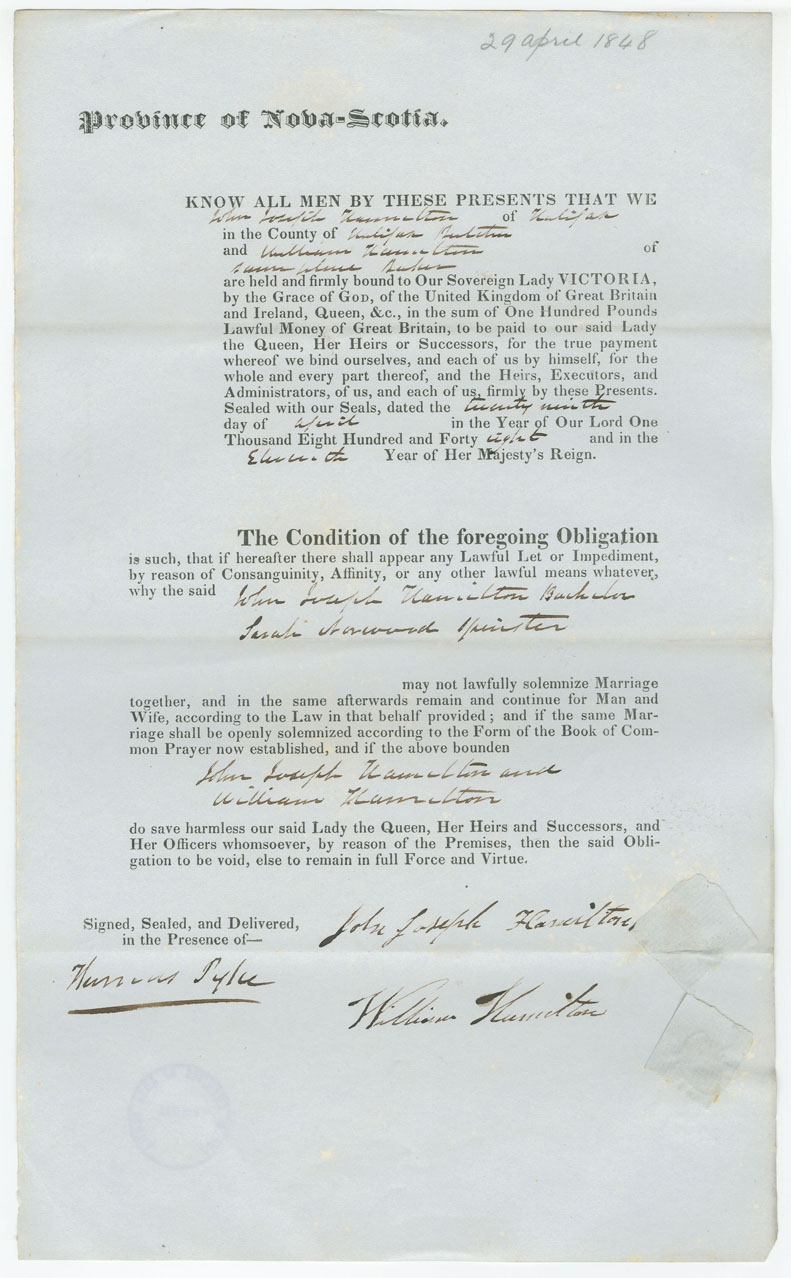 29 april 1848
Province of Nova-Scotia.
KNOW ALL MEN BY THESE PRESENTS THAT WE
John Joseph Hamilton of Halifax
in the County of Halifax
and William Hamilton of
same place Baker
are held and firmly bound to Our Sovereign Lady VICTORIA,
by the Grace of GOD, of the United Kingdom of Great Britain
and Ireland, Queen, &c., in the sum of One Hundred Pounds
Lawful Money of Great Britain, to be paid to our said Lady
the Queen, Her Heirs or Successors, for the true payment
whereof we bind ourselves, and each of us by himself, for the
whole and every part thereof, and the Heirs, Executors, and
Administrators, of us, and each of us, firmly by these Presents.
Sealed with our Seals, dated the twenty ninth
day of april in the Year of Our Lord One
Thousand Eight Hundred and Forty eight and in the
Eleventh Year of Her Majesty's Reign.
The Condition of the foregoing Obligation
is such, that if hereafter there shall appear any Lawful Let or Impediment,
by reason of Consanguinity, Affinity, or any other lawful means whatever,
why the said John Joseph Hamilton Bachelor
Sarah Norwood Spinster
may not lawfully solemnize Marriage
together, and in the same afterwards remain and continue for Man and
Wife, according to the Law in that behalf provided; and if the same Mar-
riage shall be openly solemnized according to the Form of the Book of Com-
mon Prayer now established, and if the above bounden
John Joseph Hamilton and
William Hamilton
do save harmless our said Lady the Queen, Her Heirs and Successors, and
Her Officers whomsoever, by reason of the Premises, then the said Obli-
gation to be void, else to remain in full Force and Virtue.
Signed, Sealed, and Delivered,
in the Presence of—
John Joseph Hamilton
Pyke
William Hamilton